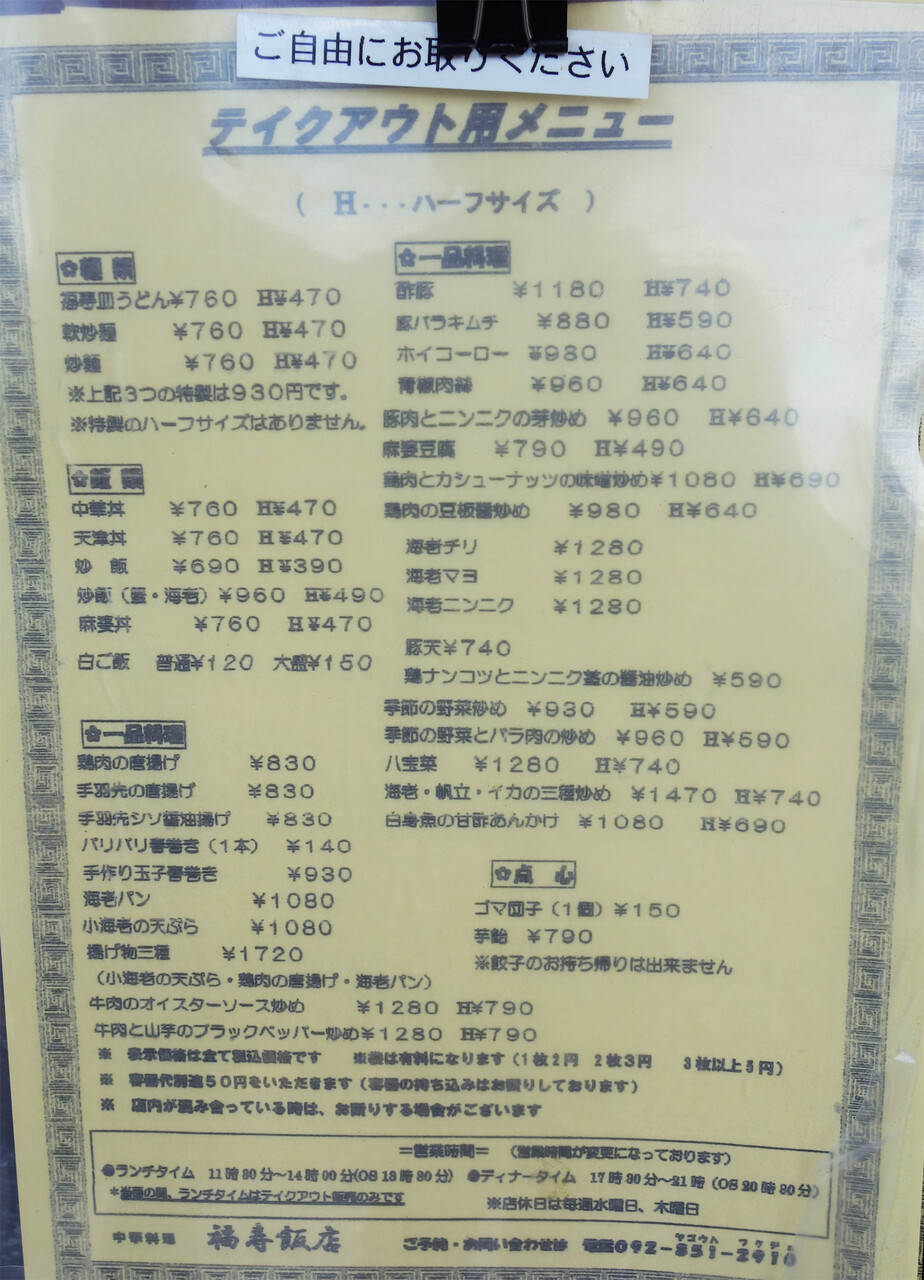 ご自由にお取りください
テイクアウト用メニュー
( H・・・ハーフサイズ )
✿麺 類
福寿皿うどん¥760 H¥470
軟炒麺 ¥760 H¥470
炒麺 ¥760 H¥470
※上記3つの特製は930円です。
※特製のハーフサイズはありません。
✿飯 類
中華丼 ¥760 H¥470
天津丼 ¥760 H¥470
炒 飯 ¥690 H¥390
炒飯（蟹・海老）¥960 H¥490
麻婆丼 ¥760 H¥470
白ご飯 普通¥120 大盛¥150
✿一品料理
鶏肉の唐揚げ ¥830
手羽先の唐揚げ ¥830
手羽先シソ醤油揚げ ¥830
パリパリ春巻き（1本） ¥140
手作り玉子春巻き ¥930
海老パン ¥1080
小海老の天ぷら ¥1080
揚げ物三種 ¥1720
（小海老の天ぷら・鶏肉の唐揚げ・海老パン）
牛肉のオイスターソース炒め ¥1280 H¥790
牛肉と山芋のブラックペッパー炒め¥1280 H¥790
✿一品料理
酢豚 ¥1180 H¥740
豚バラキムチ ¥880 H¥590
ホイコーロー ¥980 H¥640
青椒肉絲 ¥960 H¥640
豚肉とニンニクの芽炒め ¥960 H¥640
麻婆豆腐 ¥790 H¥490
鶏肉とカシューナッツの味噌炒め¥1080 H¥690
鶏肉の豆板醤炒め ¥980 H¥640
海老チリ ¥1280
海老マヨ ¥1280
海老ニンニク ¥1280
豚天¥740
鶏ナンコツとニンニク茎の醤油炒め ¥590
季節の野菜炒め ¥930 H¥590
季節の野菜とバラ肉の炒め ¥960 H¥590
八宝菜 ¥1280 H¥740
海老・帆立・イカの三種炒め ¥1470 H¥740
白身魚の甘酢あんかけ ¥1080 H¥690
✿点 心
ゴマ団子（1個）¥150
芋飴 ¥790
※餃子のお持ち帰りは出来ません
※ 表示価格は全て税込価格です ※袋は有料になります（1枚2円 2枚3円 3枚以上5円）
※ 容器代別途50円をいただきます（容器の持ち込みはお断りしております）
※ 店内が混み合っている時は、お断りする場合がございます
＝営業時間＝ （営業時間が変更になっております）
●ランチタイム 11時30分～14時00分(OS 13時30分) ●ディナータイム 17時30分～21時（OS 20時30分）
*当面の間、ランチタイムはテイクアウト販売のみです
※店休日は毎週水曜日、木曜日
中華料理 福寿飯店 ご予約・お問い合わせは 電話092-851-2910